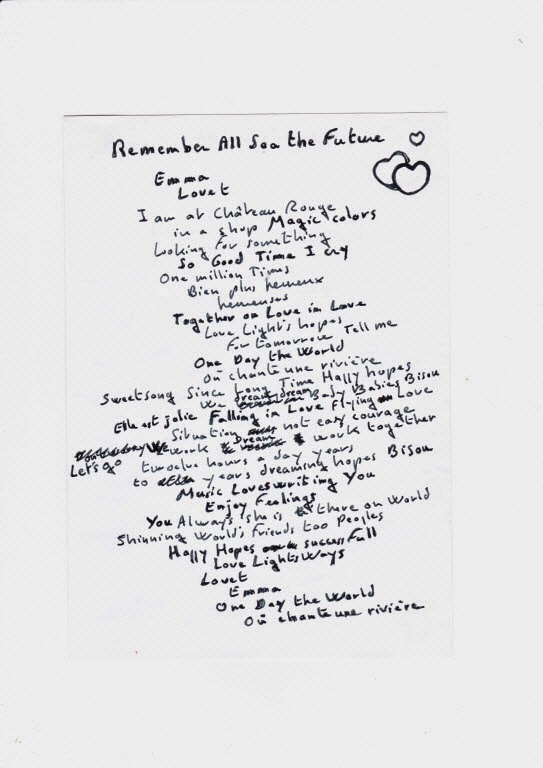 Remember All Sea the Future
Emma
Lovet
I am at Château Rouge
in a shop Magic colors
Looking for something
So Good Time I cry
One million Times
Bien plus heureux
heureuses
Together on Love in Love
Love Light's hopes
For tomorrow Tell me
One Day the World
Où chante une rivière
Sweetsong Since Long Time Happy hopes
We dream dream Baby Babies Bisou
Elle est jolie Falling in Love Flying Love
Situation not easy courage
We work Dream & work together
Let's go twoelve hours a day years
to years dreaming hopes Bisou
Music Loveswriting You
Enjoy Feelings
You Always she is there on World
Shinning World's Friends too Peoples
Happy Hopes success Full
Love Lights Ways
Lovet
Emma
One Day the World
Où chante une rivière